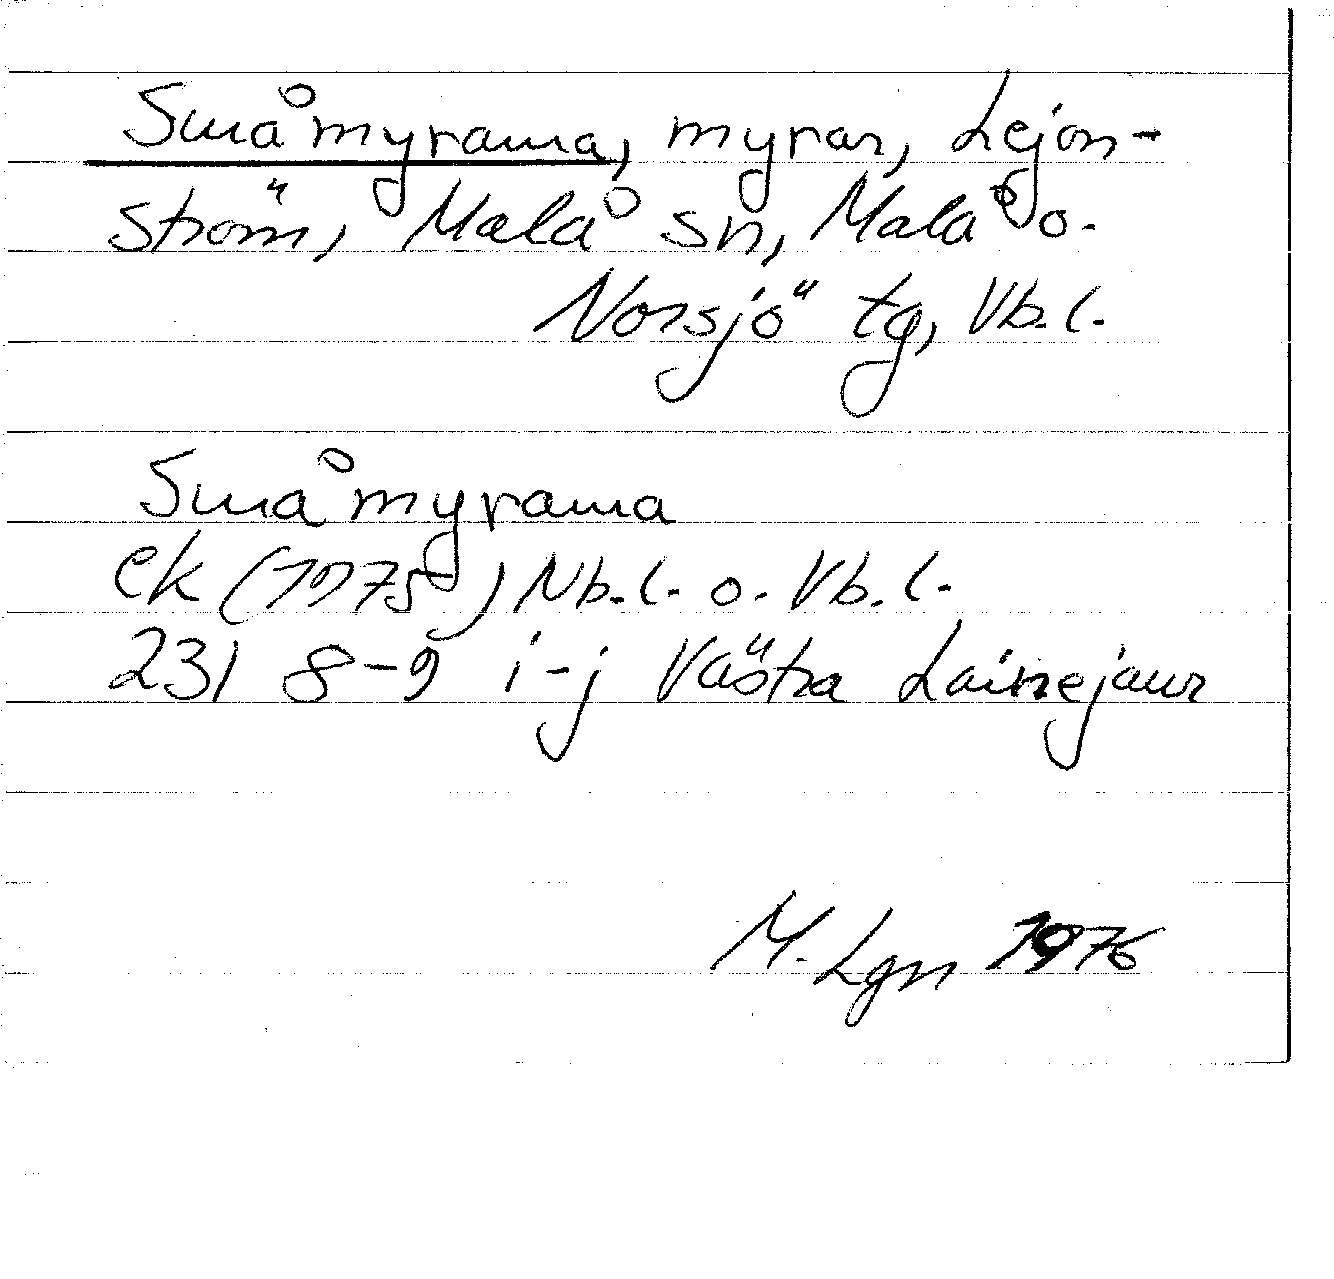 Småmyrarna, myrar, Lejon-
ström, Malå sn, Malå o.
Norsjö tg, Vb.l.
Småmyrarna
ek (1975) Nb.l. o. Vb.l.
23I 8-9 i-j Västra Lainejaur
M. Lgn 1976